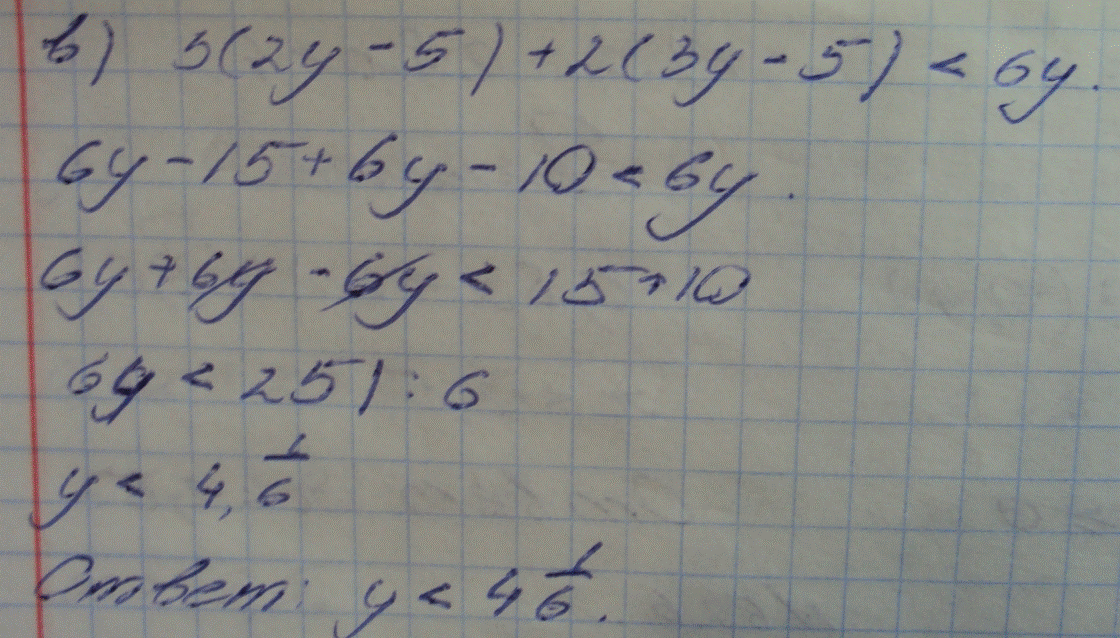 в) 3(2y - 5) + 2(3y - 5) < 6y.
6y - 15 + 6y - 10 < 6y.
6y + 6y - 6y < 15 + 10
6y < 25 | : 6
y < 4, 1/6
Ответ: y < 4 1/6.